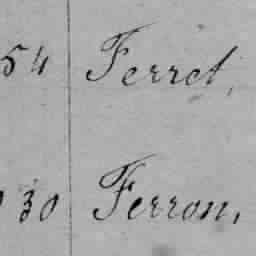 54 Ferret,
30 Ferron,